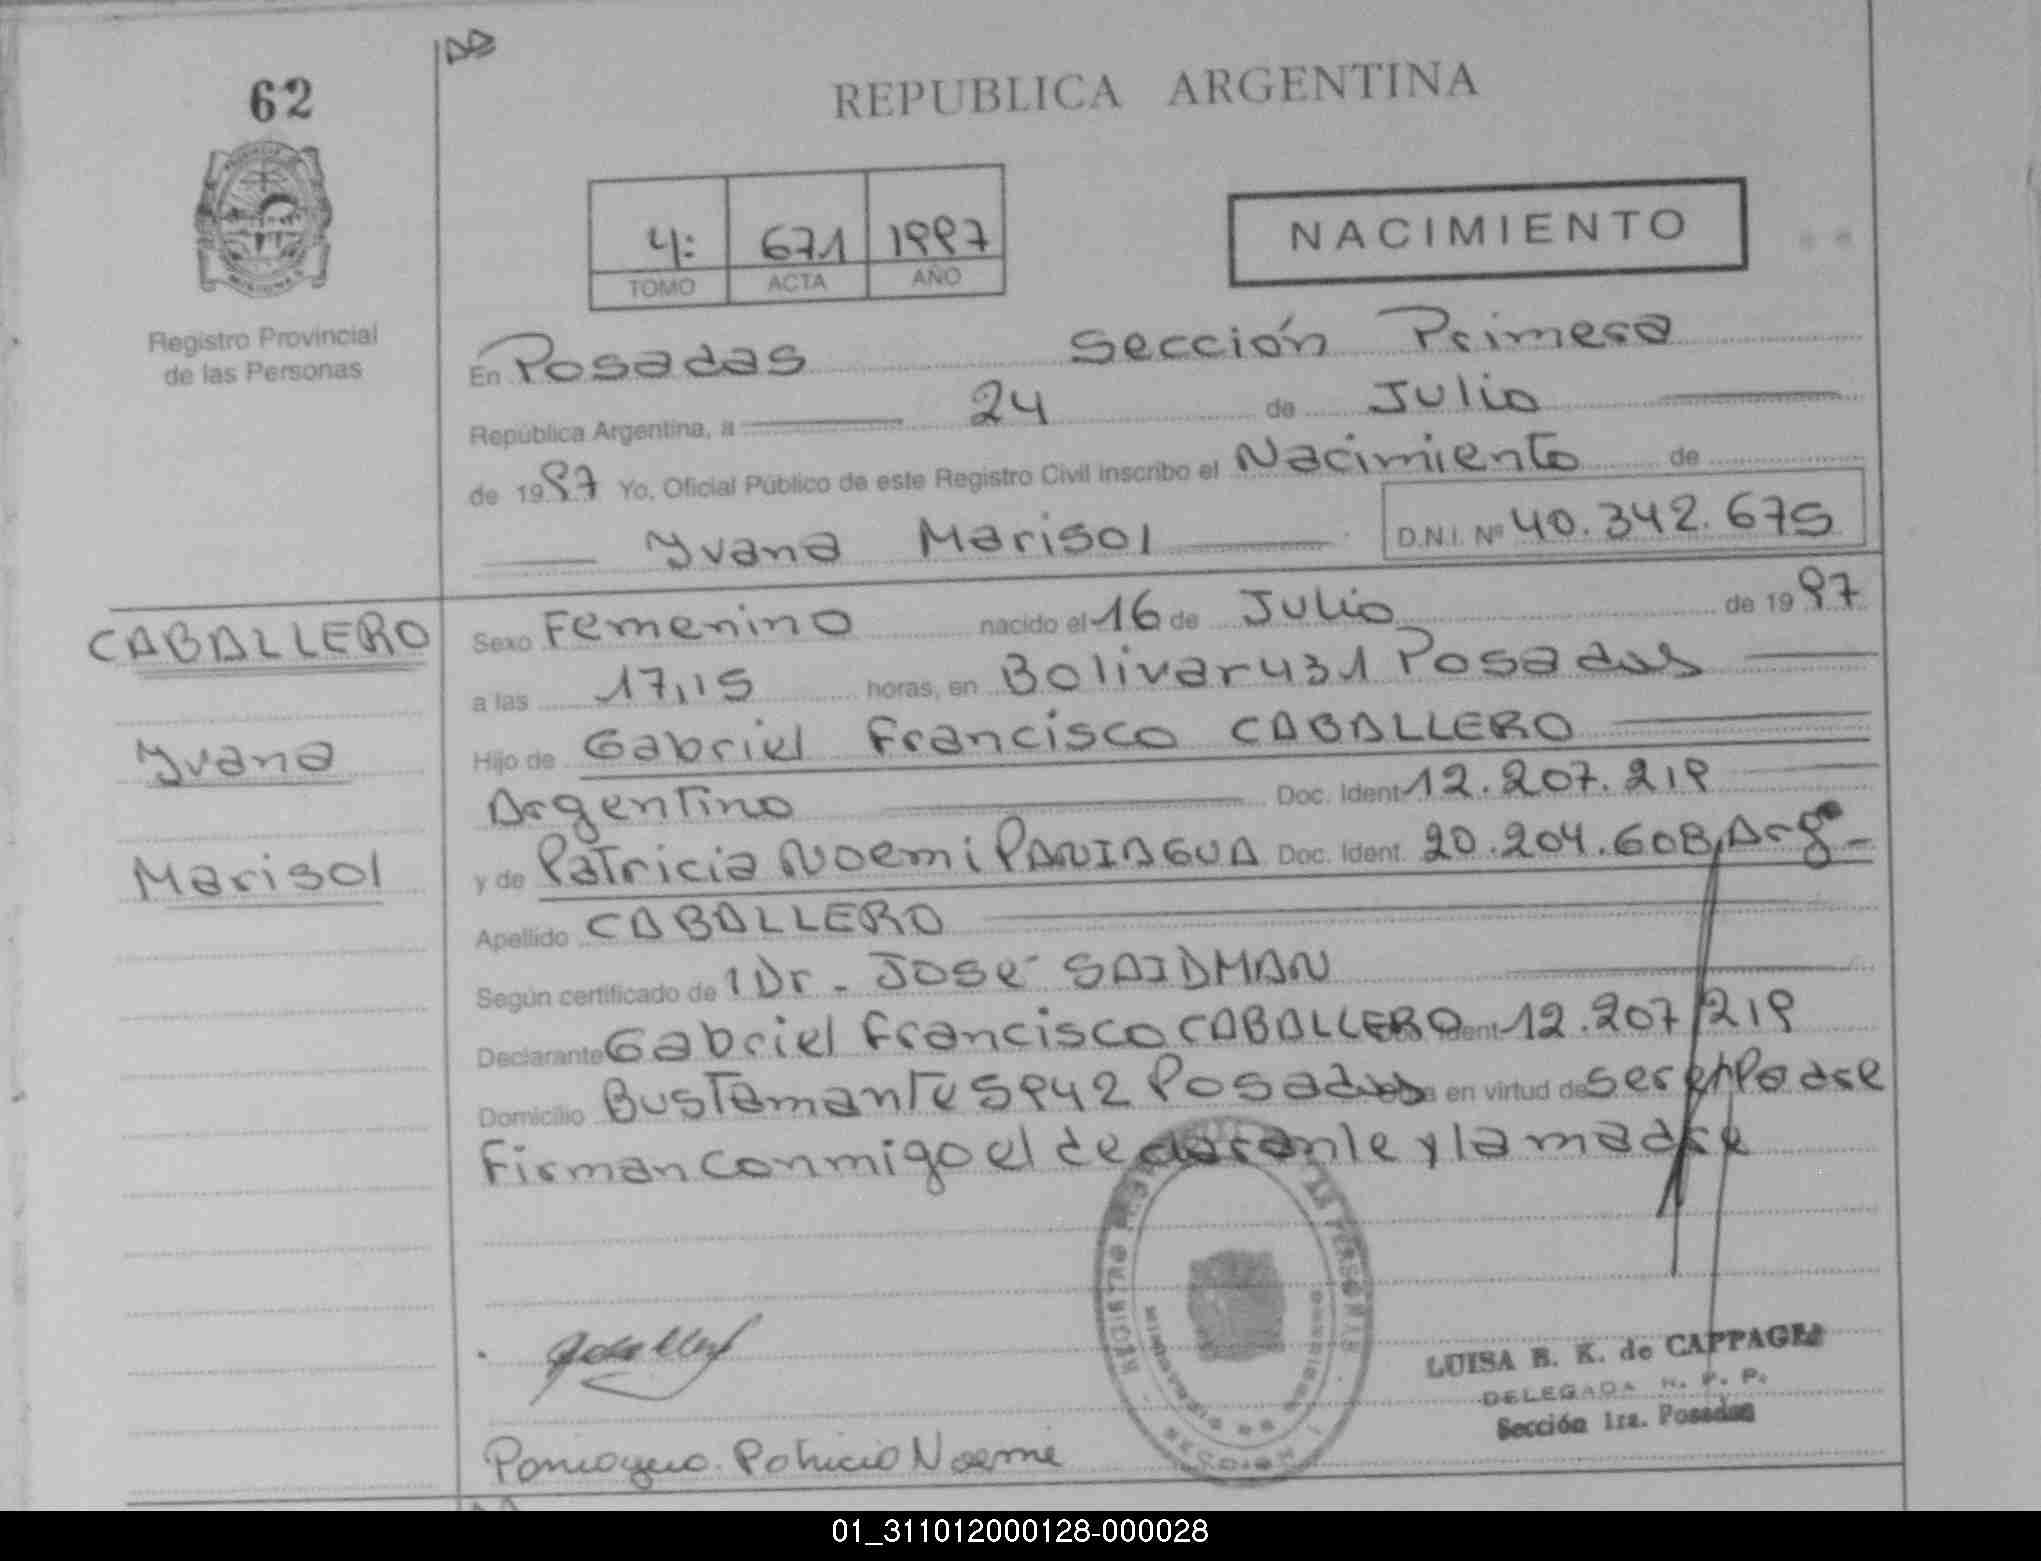 62
REPUBLICA ARGENTINA
4: 671 1997
TOMO ACTA AÑO
NACIMIENTO
Registro Provincial
de las Personas
En Posadas Sección Primera
República Argentina, a 24 de Julio
de 1997 Yo, Oficial Público de este Registro Civil inscribo el Nacimiento de
Yvana Marisol D.N.I. Nº 40.342.675
CABALLERO
Yvana
Marisol
Sexo Femenino nacido el 16 de Julio de 1997
a las 17,15 horas, en Bolivar 431 Posadas
Hijo de Gabriel Francisco CABALLERO
Argentino Doc. Ident 12.207.219
y de Patricia Noemi PANIAGUA Doc. Ident. 20.204.608, Arg
Apellido CABALLERO
Según certificado de 1 Dr. José SAIDMAN
Declarante Gabriel Francisco CABALLERO Ident 12.207.219
Domicilio Bustamante 5942 Posadas en virtud de ser el Padre
Firman conmigo el declarante y la madre
Paniagua Patricia Noemi
LUISA B. K. de CAPPAGLI
DELEGADA R. P. P.
Sección 1ra. Posadas
01_311012000128-000028